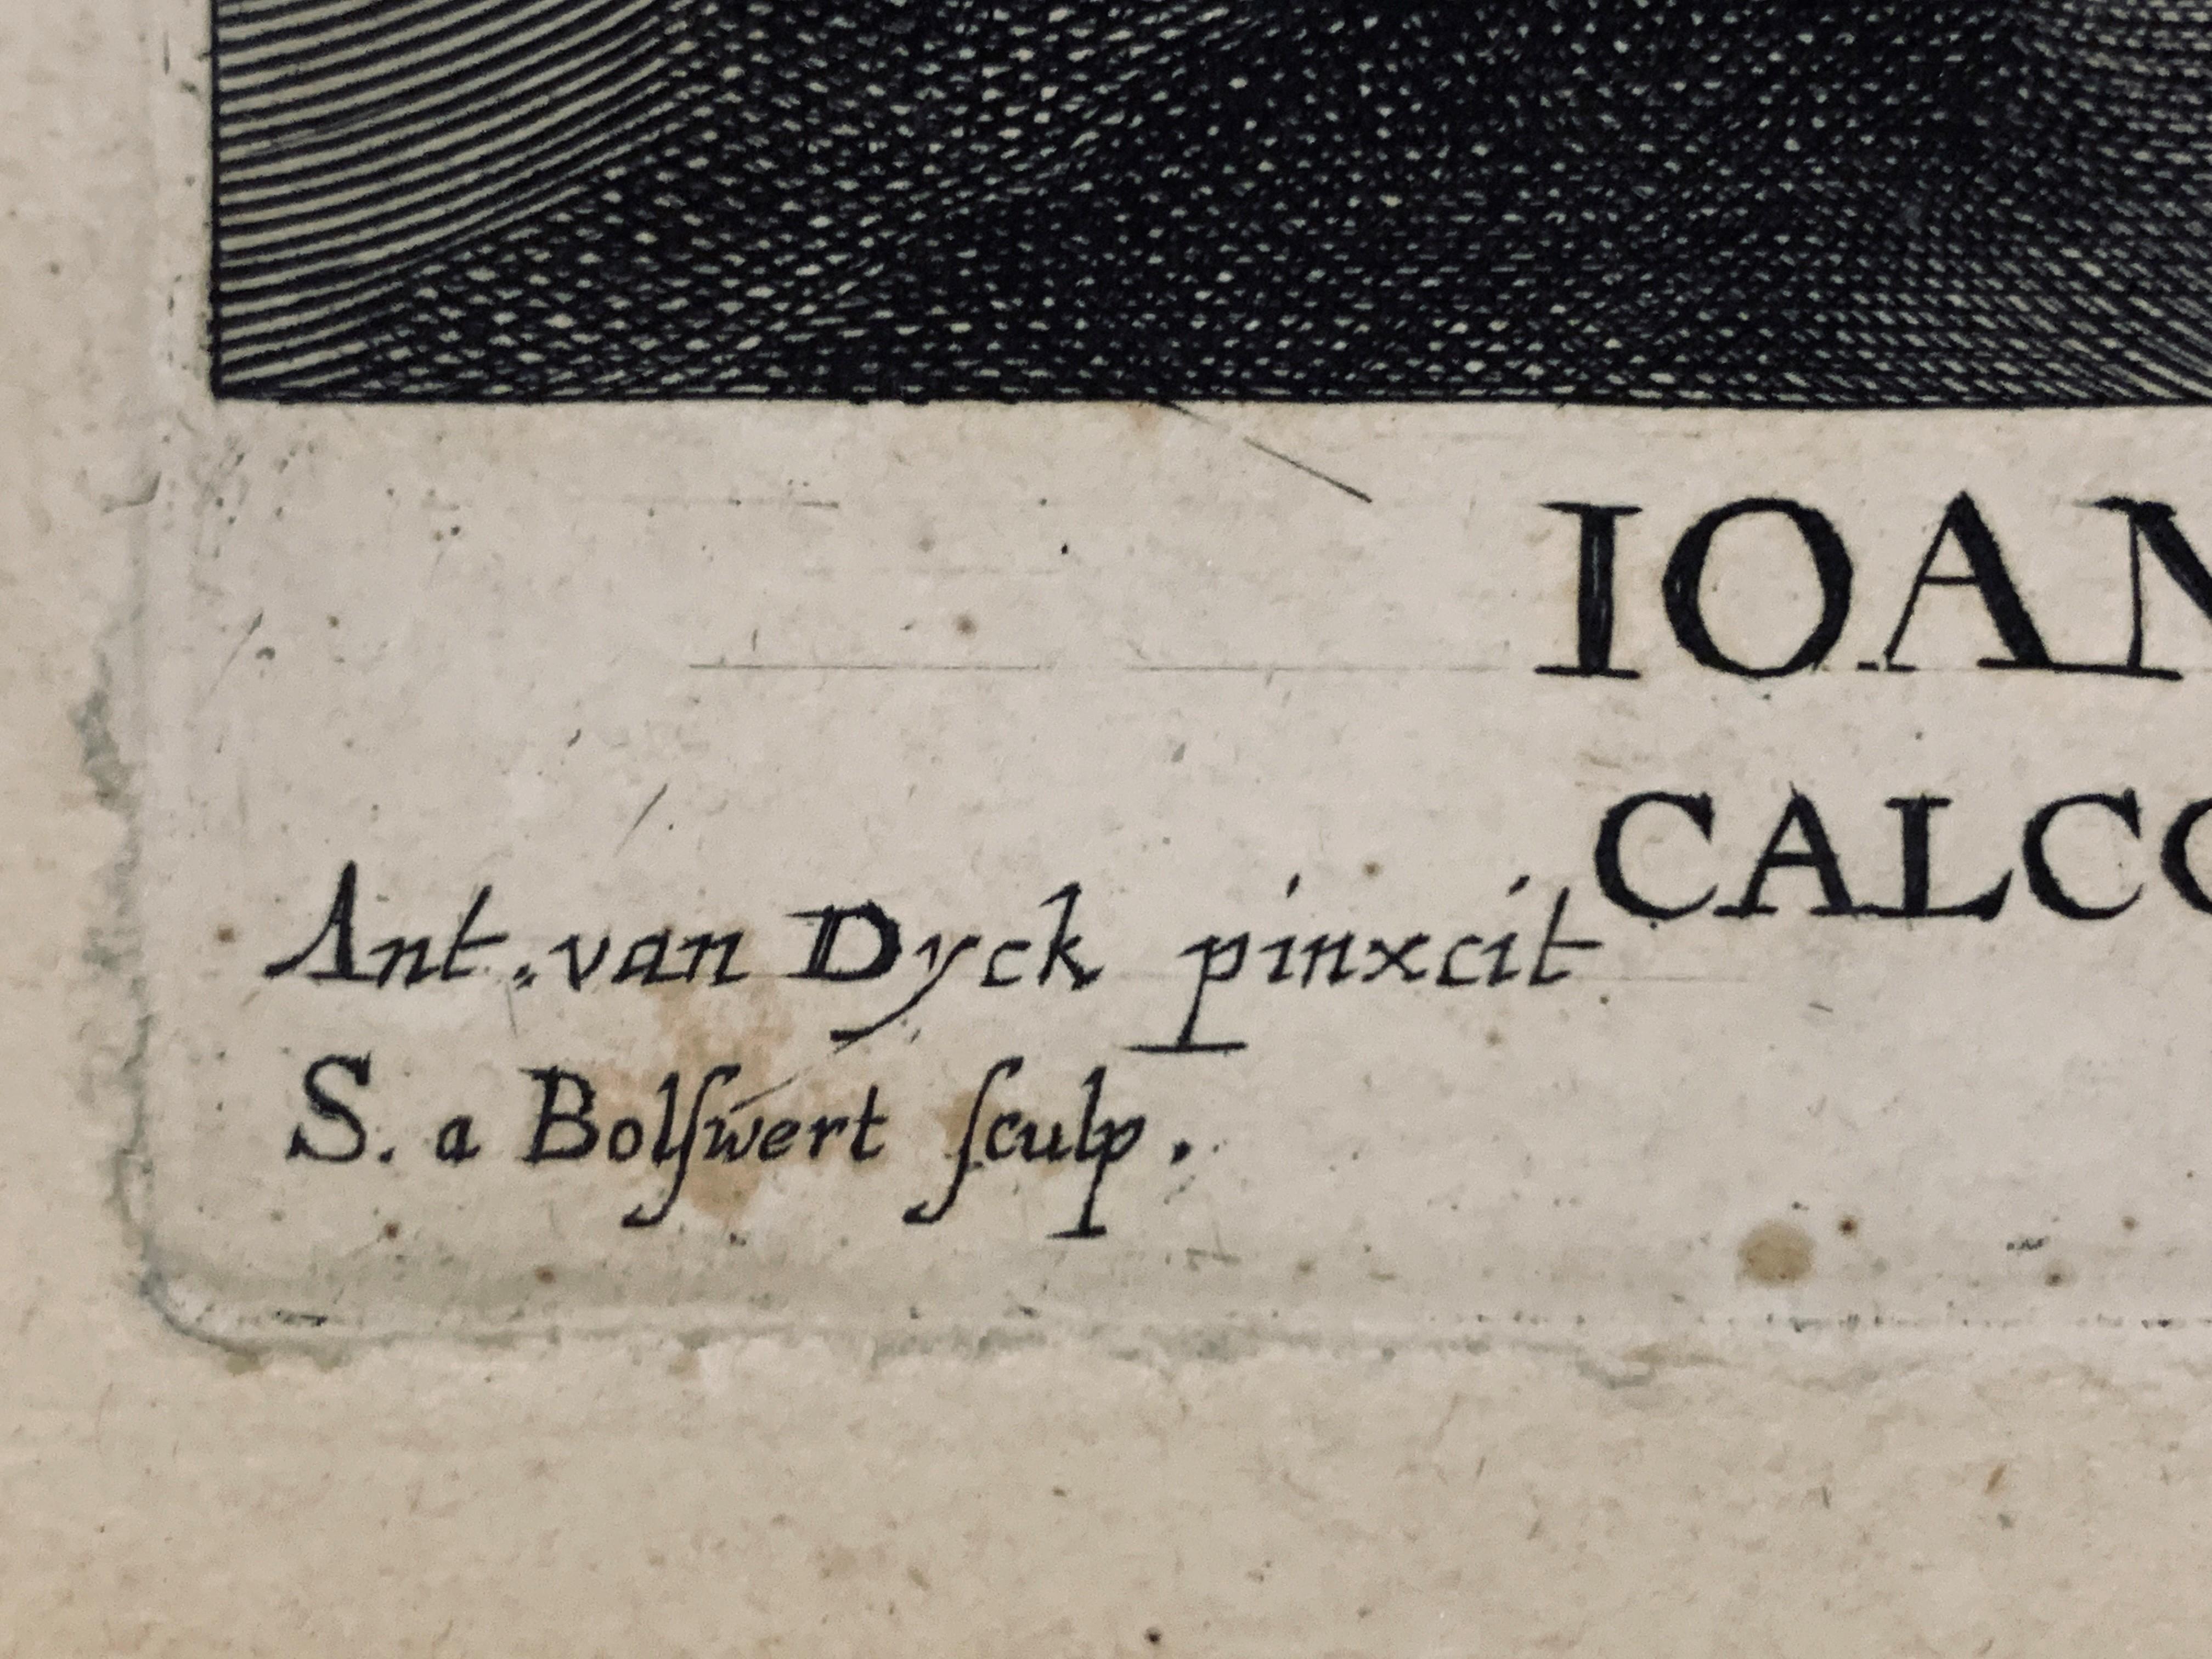 IOAN
CALCO
Ant. van Dyck pinxcit
S. a Bolſwert ſculp.